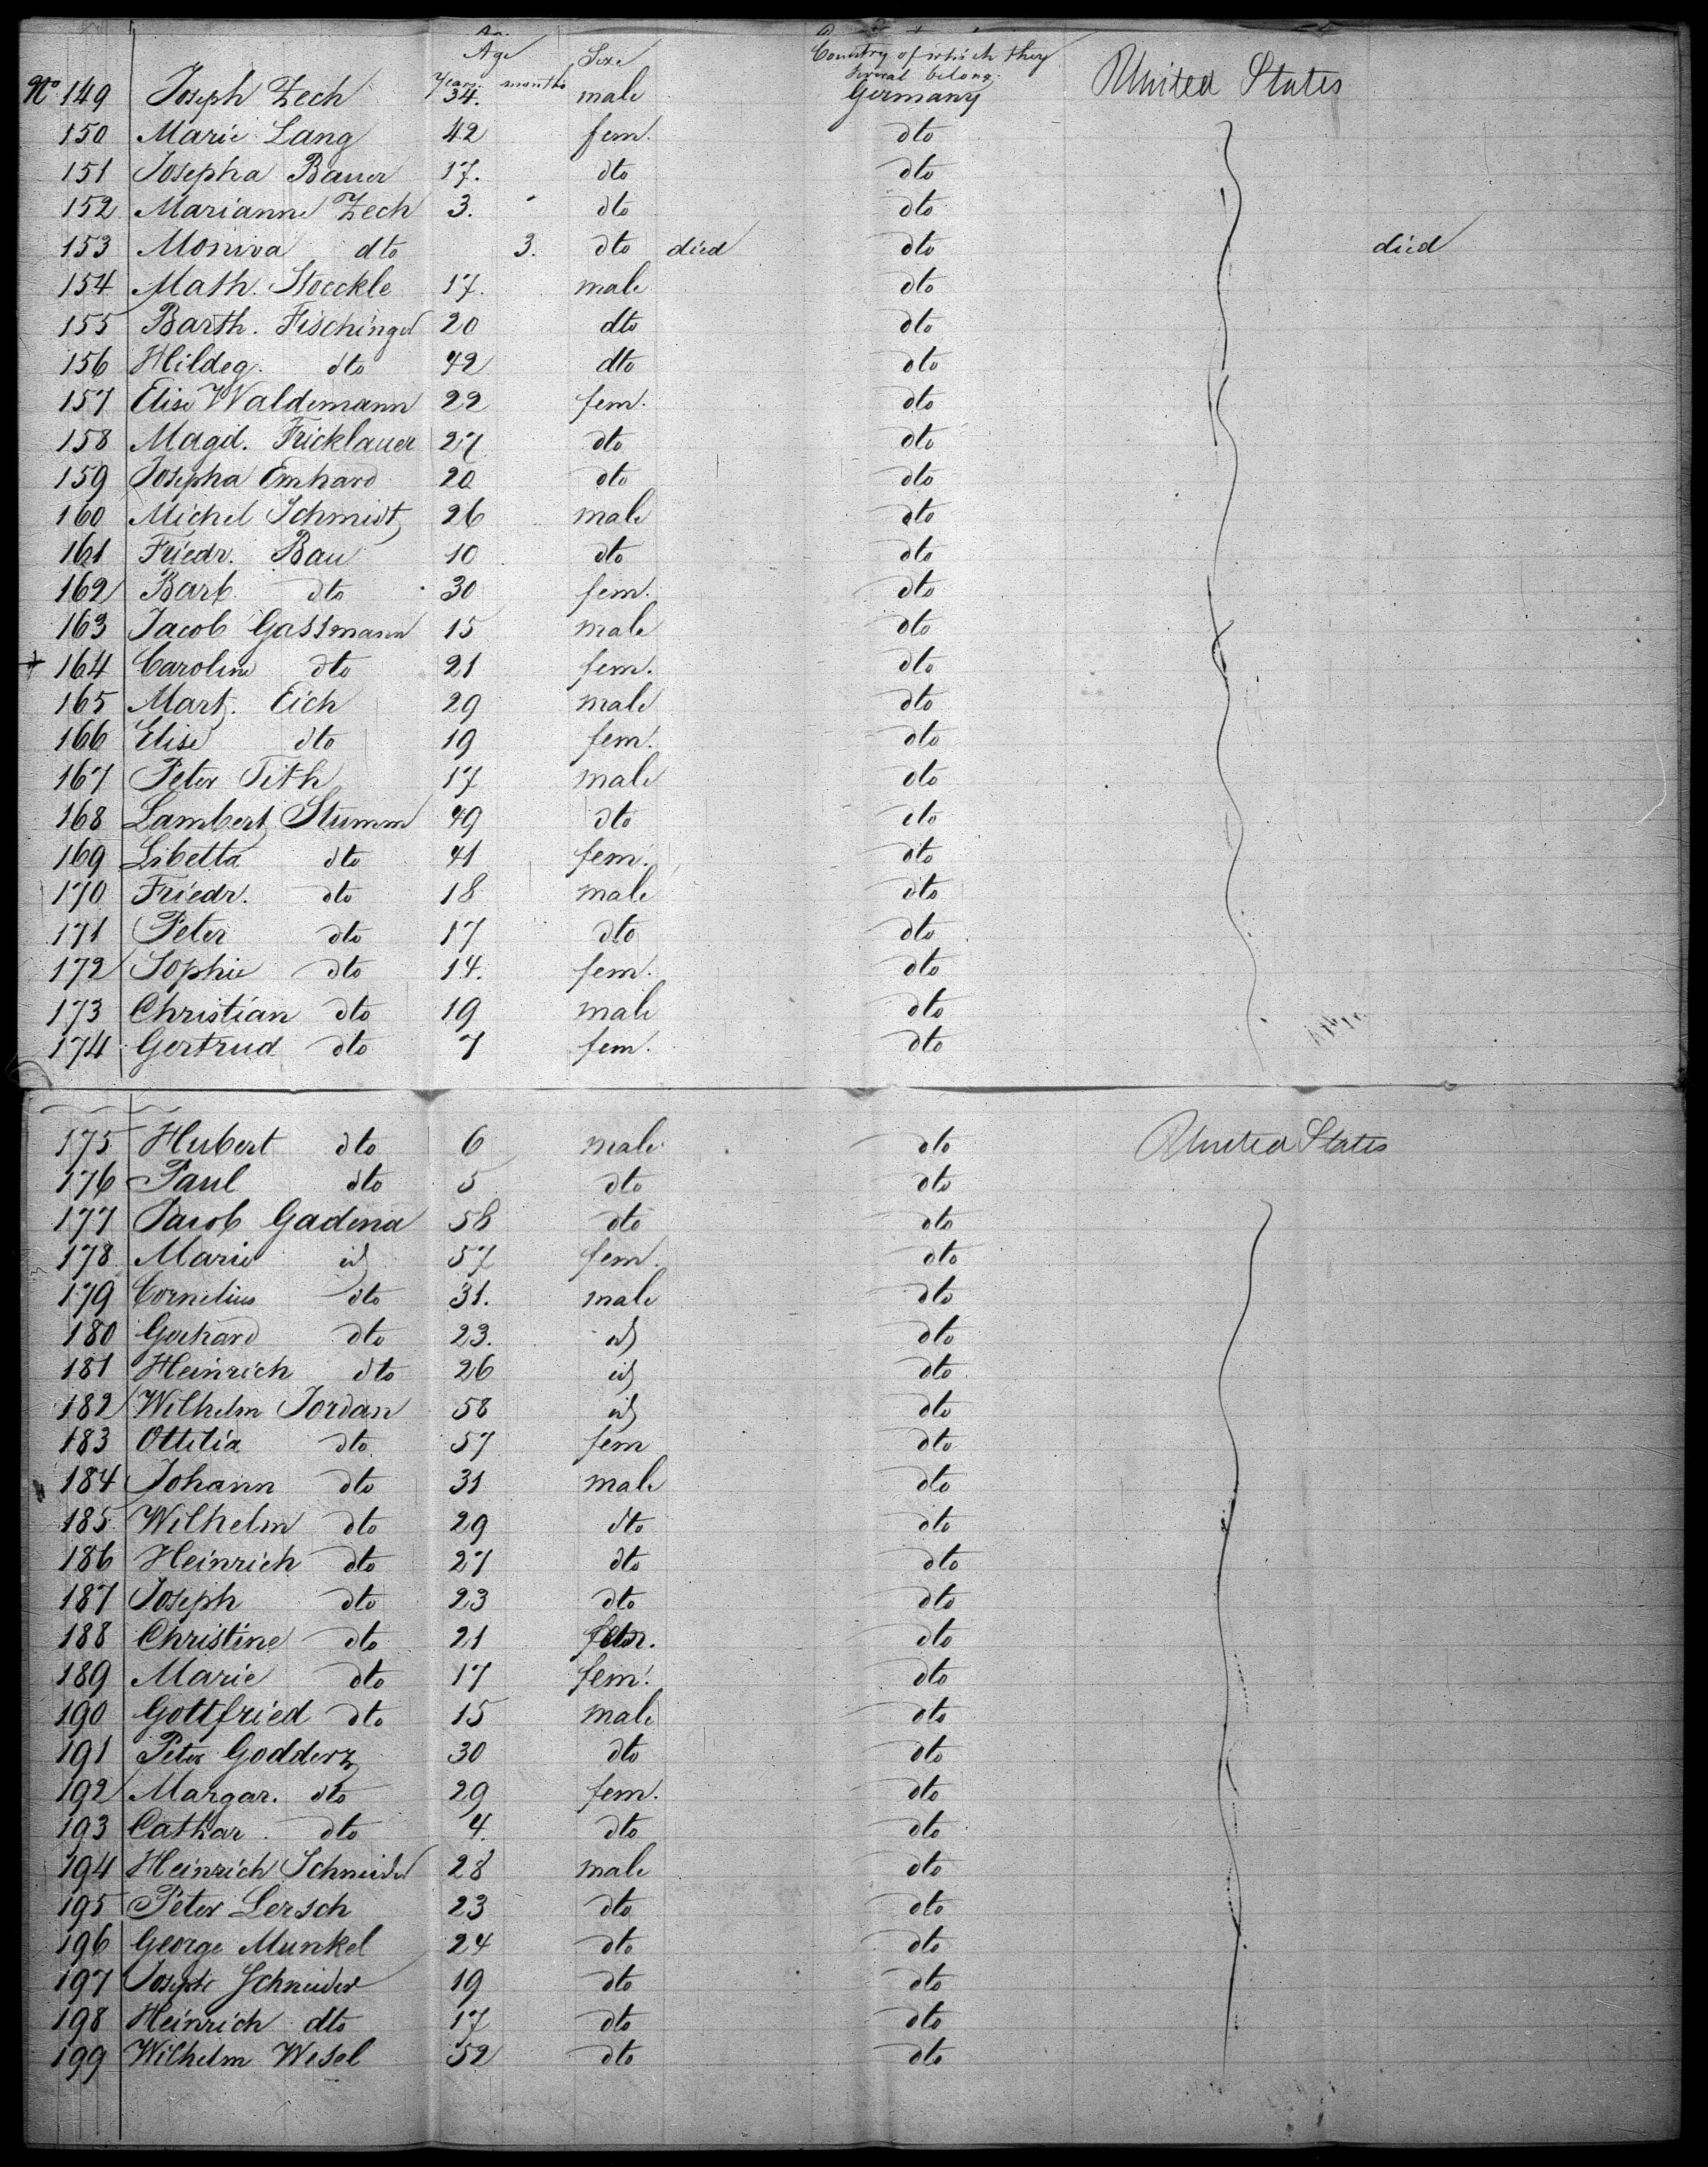 Age Sexe Country of which they
Years months several belong
No 149 Joseph Zech 34. male Germany United States
150 Marie Lang 42 fem. dto
151 Josepha Bauer 17. dto dto
152 Marianne Zech 3. dto dto
153 Moniva dto 3. dto died dto died
154 Math. Stoeckle 17. male dto
155 Barth. Fischinger 20 dto dto
156 Hildeg. dto 42 dto dto
157 Elise Waldemann 22 fem. dto
158 Magd. Fricklauer 27 dto dto
159 Josepha Emhard 20 dto dto
160 Michel Schmidt 26 male dto
161 Friedr. Bau 10 dto dto
162 Barb. dto 30 fem. dto
163 Jacob Gassmann 15 male dto
164 Caroline dto 21 fem. dto
165 Mart. Eich 29 male dto
166 Elise dto 19 fem. dto
167 Peter Tith 17 male dto
168 Lambert Stumm 49 dto dto
169 Libetta dto 41 fem. dto
170 Friedr. dto 18 male dto
171 Peter dto 17 dto dto
172 Sophie dto 14. fem. dto
173 Christian dto 19 male dto
174 Gertrud dto 7 fem. dto
175 Hubert dto 6 male dto United States
176 Paul dto 5 dto dto
177 Jacob Gadena 58 dto dto
178 Marie id 57 fem. dto
179 Cornelius dto 31. male dto
180 Gerhard dto 23. id dto
181 Heinrich dto 26 id dto
182 Wilhelm Jordan 58 id dto
183 Ottilia dto 57 fem dto
184 Johann dto 31 male dto
185 Wilhelm dto 29 dto dto
186 Heinrich dto 27 dto dto
187 Joseph dto 23 dto dto
188 Christine dto 21 fem. dto
189 Marie dto 17 fem. dto
190 Gottfried dto 15 male dto
191 Peter Godderz 30 dto dto
192 Margar. dto 29 fem. dto
193 Cathar. dto 4. dto dto
194 Heinrich Schneider 28 male dto
195 Peter Lersch 23 dto dto
196 George Munkel 24 dto dto
197 Joseph Schneider 19 dto dto
198 Heinrich dto 17 dto dto
199 Wilhelm Wesel 52 dto dto